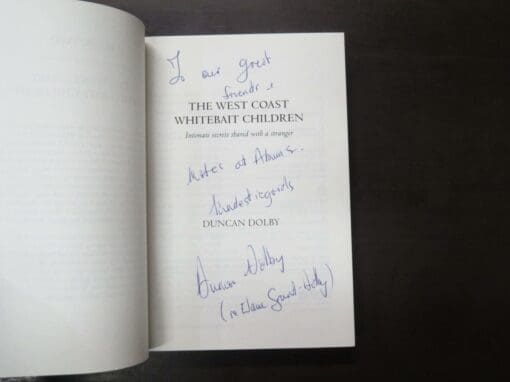 To our great
friends &
THE WEST COAST
WHITEBAIT CHILDREN
Intimate secrets shared with a stranger
Mates at
Kindest regards
DUNCAN DOLBY
Duncan Dolby